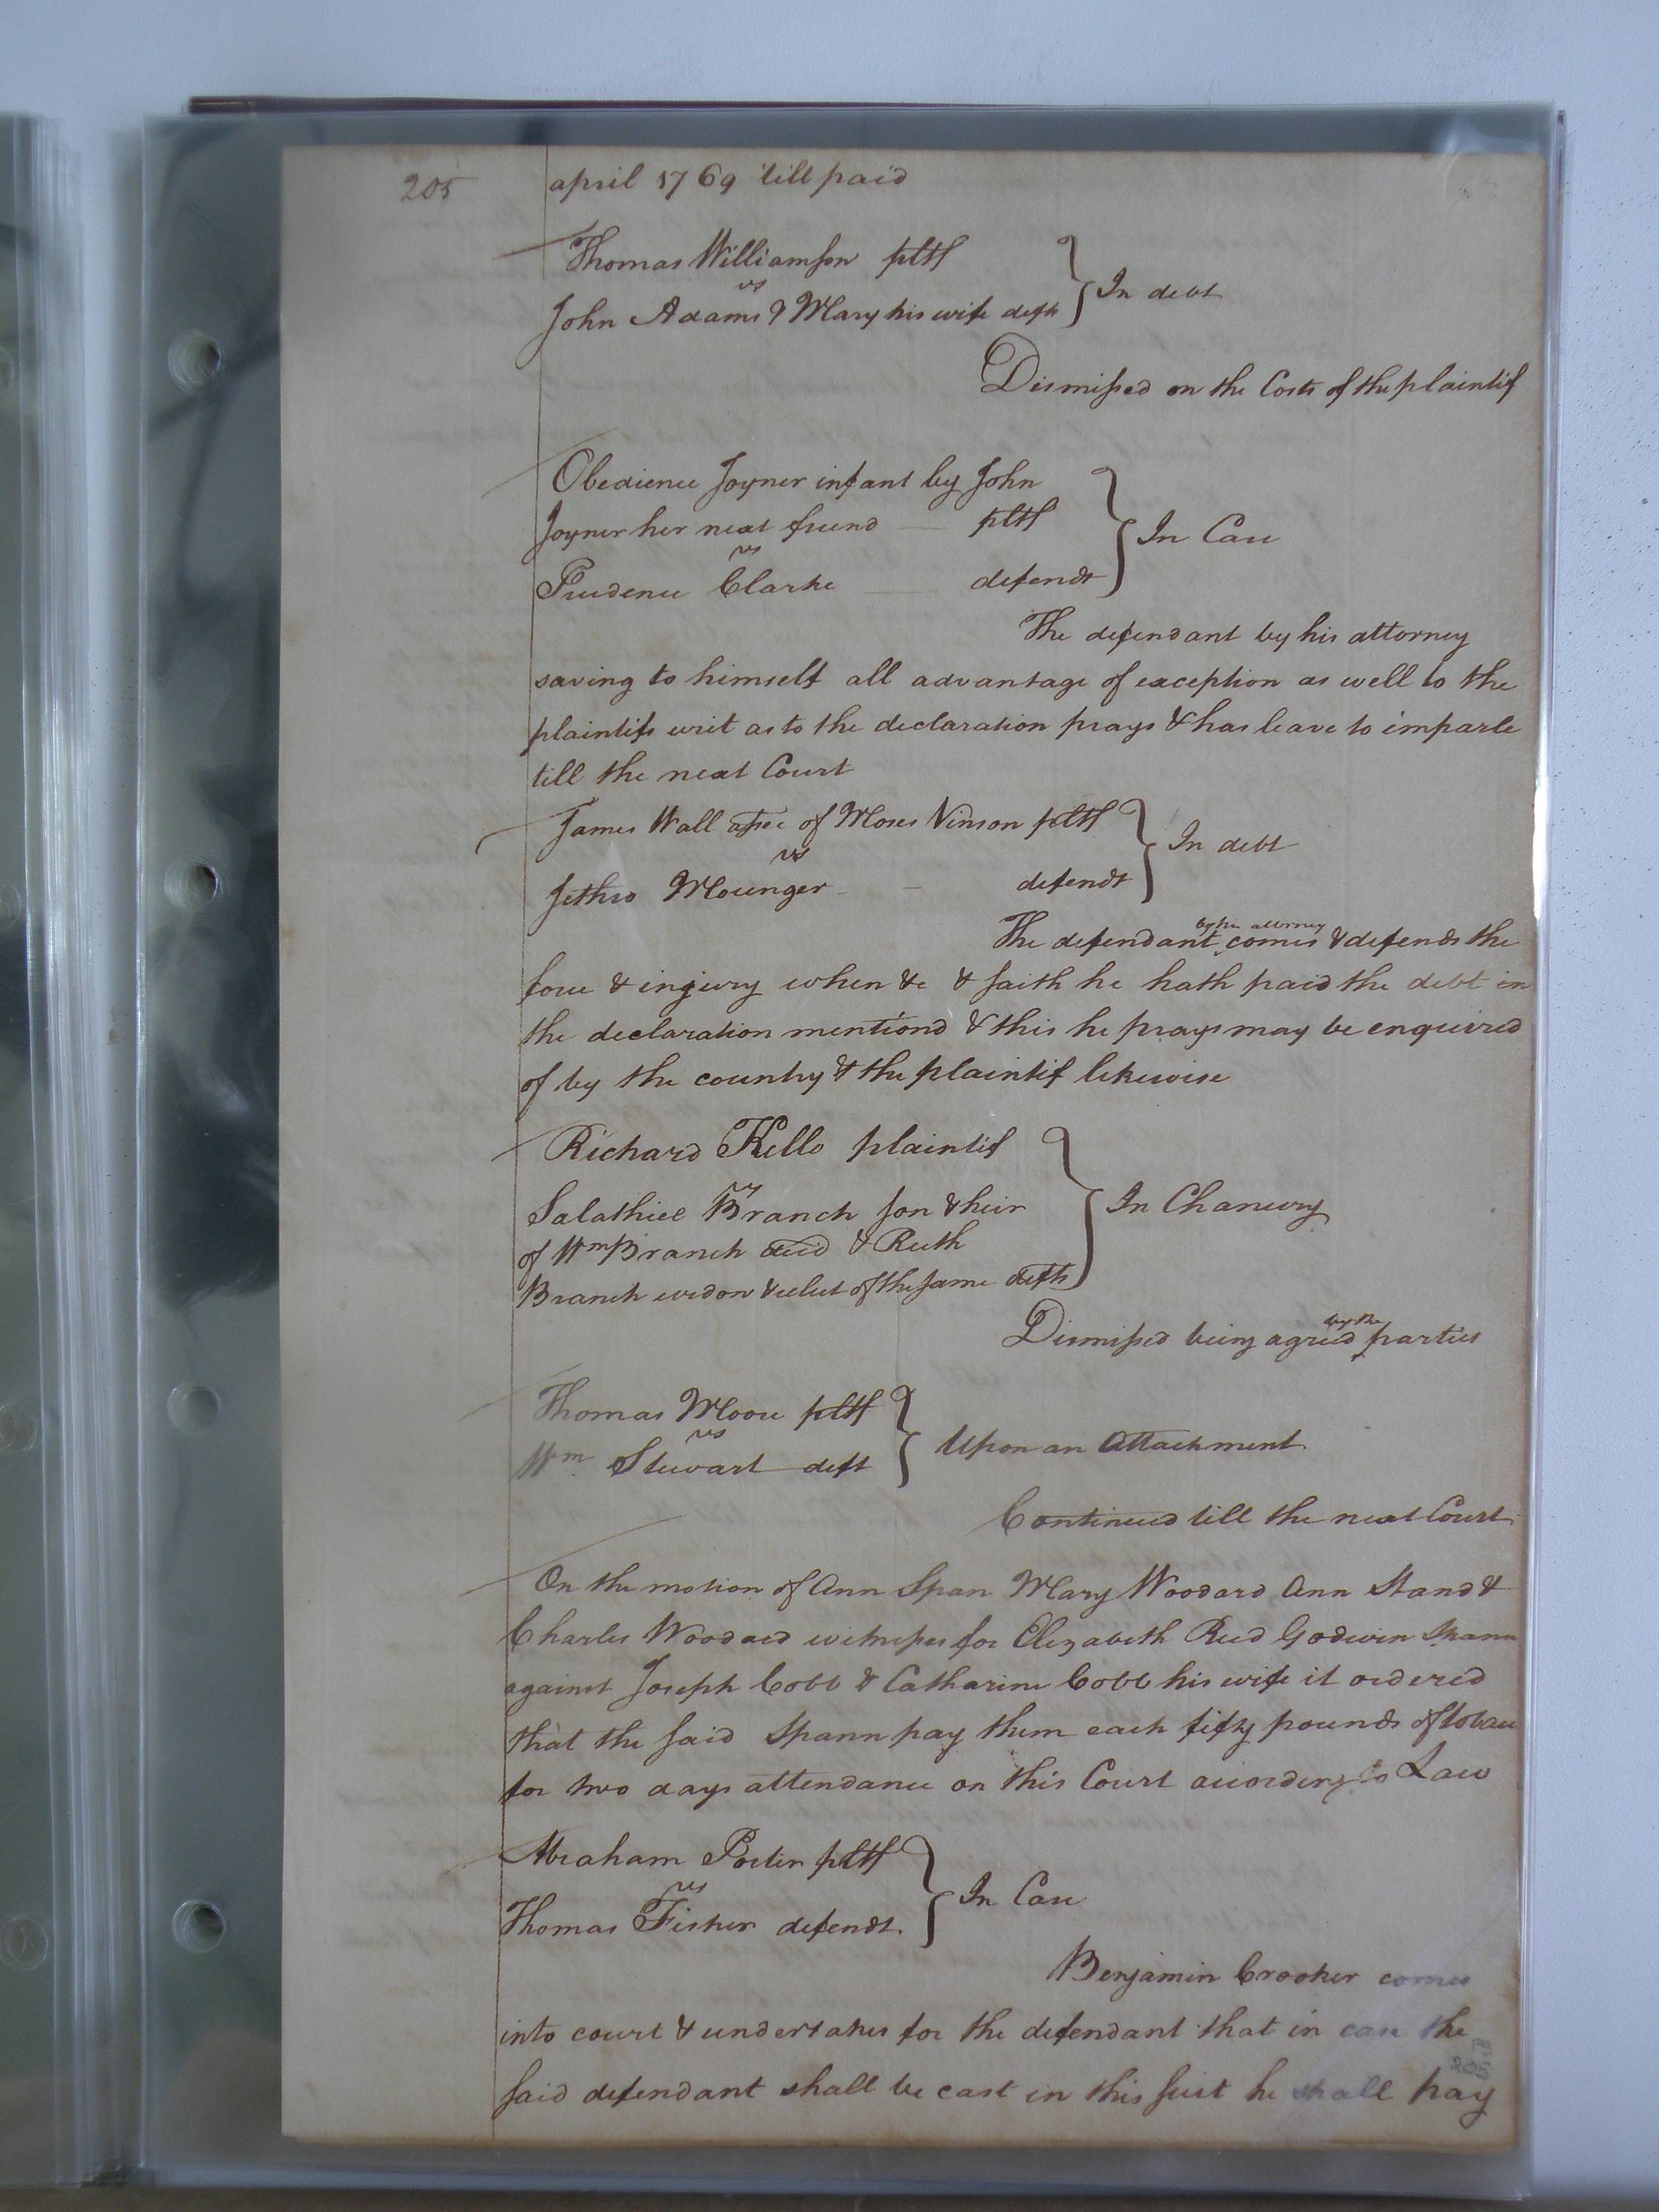 205
april 1769 till paid
Thomas Williamson pltf
vs
John Adams & Mary his wife defts } In debt
Dismissed on the Costs of the plaintif
Obedience Joyner infant by John
Joyner her next friend — pltf
vs } In Case
Prudence Clarke — defendt
The defendant by his attorney
saving to himself all advantage of exception as well to the
plaintifs writ as to the declaration prays & has leave to imparle
till the next Court
James Wall assee of Moses Vinson pltf
vs } In debt
Jethro Mounger - - defendt
The defendant by his attorney comes & defends the
force & injury when &c & saith he hath paid the debt in
the declaration mentiond & this he prays may be enquired
of by the country & the plaintif likewise
Richard Kello plaintif
vs
Salathiel Branch son & heir } In Chancery
of Wm Branch decd & Ruth
Branch widow & relict of the same defts
Dismissed being agreed by the parties
Thomas Moore pltf
vs } Upon an Attachment
Wm Stewart deft
Continued till the next Court
On the motion of Ann Span Mary Woodard Ann Stand &
Charles Woodard witnesses for Elizabeth Reed Godwin Spann
against Joseph Cobb & Catharine Cobb his wife it ordered
that the said Spann pay them each fifty pounds of tobacco
for two days attendance on this Court according to Law
Abraham Porter pltf
vs } In Case
Thomas Fisher defendt.
Benjamin Crooker comes
into court & undertakes for the defendant that in case the
said defendant shall be cast in this suit he shall pay